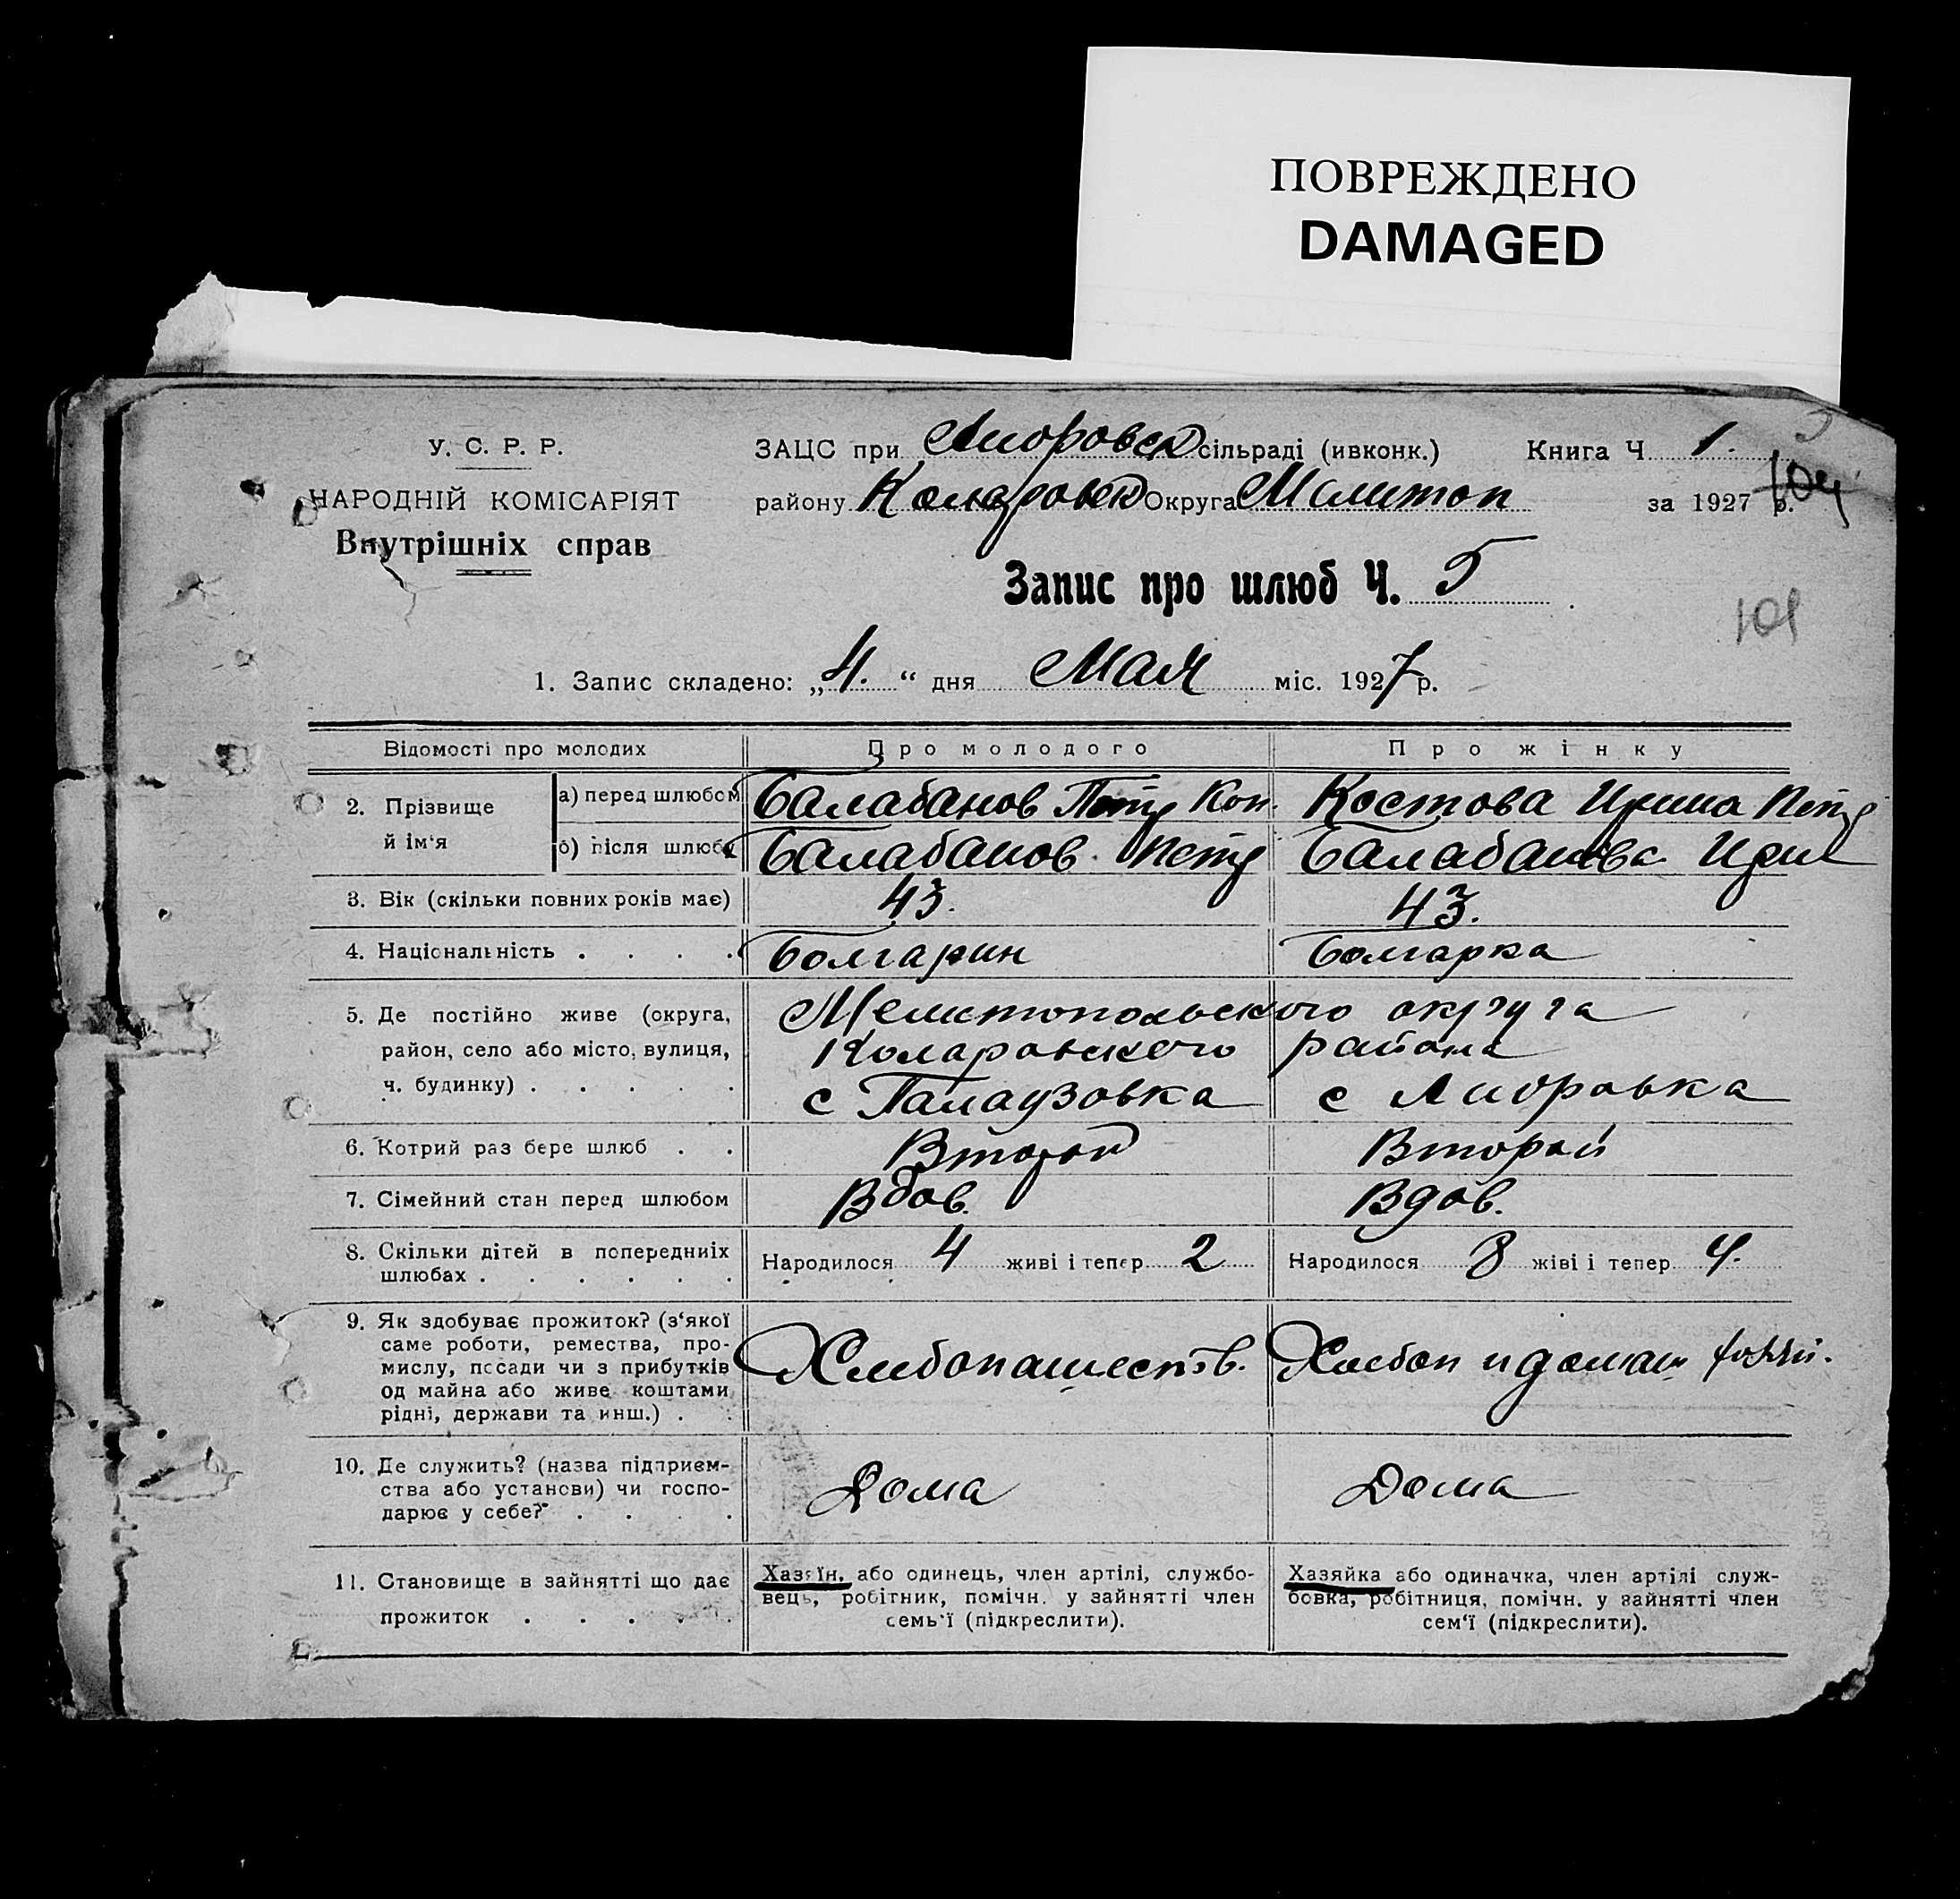 ПОВРЕЖДЕНО
DAMAGED
У. С. Р. Р.
НАРОДНІЙ КОМІСАРІЯТ
Внутрішніх справ
ЗАЦС при Андровск сільраді (ивконк.) Книга Ч 1.
району Коларовск Округа Мелитоп за 1927 р.
Запис про шлюб Ч. 5
1. Запис складено: „4.“ дня Мая міс. 1927 р.
Відомості про молодих Про молодого Про жінку
2. Прізвище й ім'я
а) перед шлюбом Балабанов Петр Кон. Костова Ирина Петр
б) після шлюбу Балабанов Петр Балабанова Ирин
3. Вік (скільки повних років має) 43. 43.
4. Національність . . . . Болгарин Болгарка
5. Де постійно живе (округа, Мелитопольского округа
район, село або місто, вулиця, Коларовского района
ч. будинку) . . . . . с Палаузовка с Андровка
6. Котрий раз бере шлюб . . Второй Второй
7. Сімейний стан перед шлюбом Вдов. Вдов.
8. Скільки дітей в попередниіх Народилося 4 живі і тепер 2 Народилося 8 жіві і тепер 4.
шлюбах . . . . . .
9. Як здобуває прожиток? (з'якої
саме роботи, ремества, про-
мислу, посади чи з прибутків Хлебопашеств. Хлебоп и домаш
од майна або живе коштами
рідні, держави та инш.) . .
10. Де служить? (назва підприєм-
ства або установи) чи госпо- Дома Дома
дарює у себе? . . . .
11. Становище в зайнятті що дає
прожиток . . . . .
Хазяїн, або одинець, член артілі, службо-
вець, робітник, помічн. у зайнятті член
семь'ї (підкреслити).
Хазяйка або одиначка, член артілі служ-
бовка, робітниця, помічн. у зайнятті член
сем'ї (підкреслити).